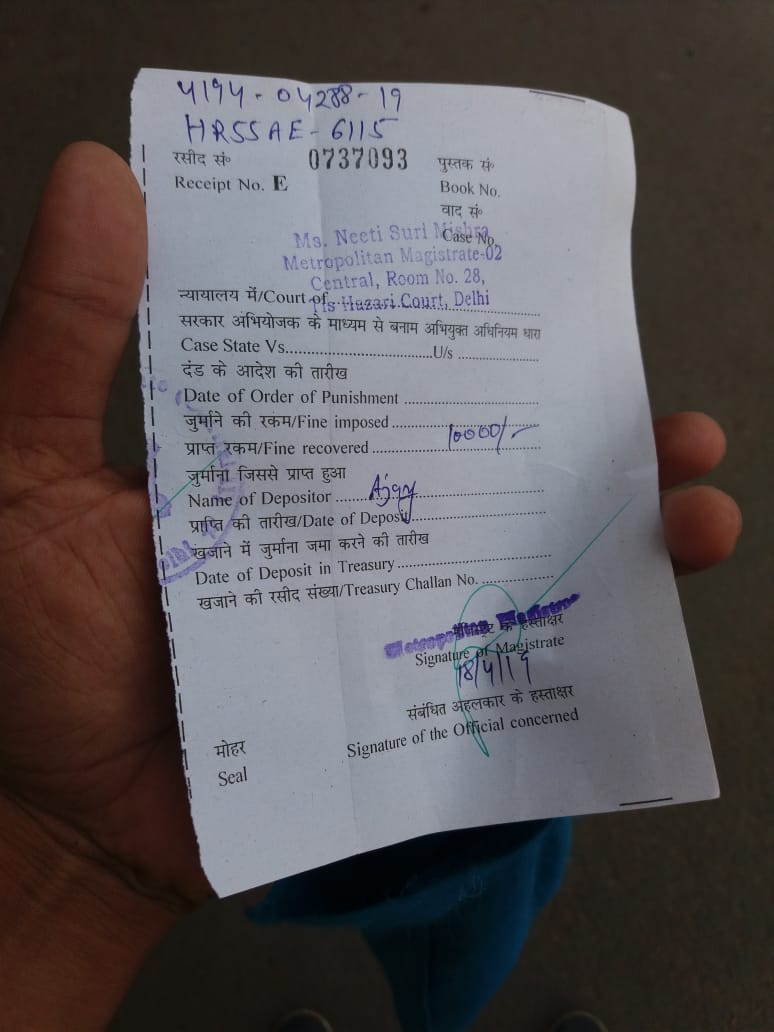 4194-04288-19
HR55AE-6115
रसीद सं० 0737093 पुस्तक सं०
Receipt No. E Book No.
वाद सं०
Case No.
Ms. Neeti Suri Mishra
Metropolitan Magistrate-02
Central, Room No. 28,
Tis Hazari Court, Delhi
न्यायालय में/Court of
सरकार अभियोजक के माध्यम से बनाम अभियुक्त अधिनियम धारा
Case State Vs..........................................U/s .......................
दंड के आदेश की तारीख
Date of Order of Punishment ......................................
जुर्माने की रकम/Fine imposed ..........................................
प्राप्त रकम/Fine recovered .......................................... 10000/-
जुर्माना जिससे प्राप्त हुआ
Name of Depositor .......................................... Ajay
प्राप्ति की तारीख/Date of Deposit ......................................
खजाने में जुर्माना जमा करने की तारीख
Date of Deposit in Treasury ..........................................
खजाने की रसीद संख्या/Treasury Challan No. ....................
Metropolitan Magistrate
के हस्ताक्षर
Signature of Magistrate
18/4/19
संबंधित अहलकार के हस्ताक्षर
मोहर Signature of the Official concerned
Seal